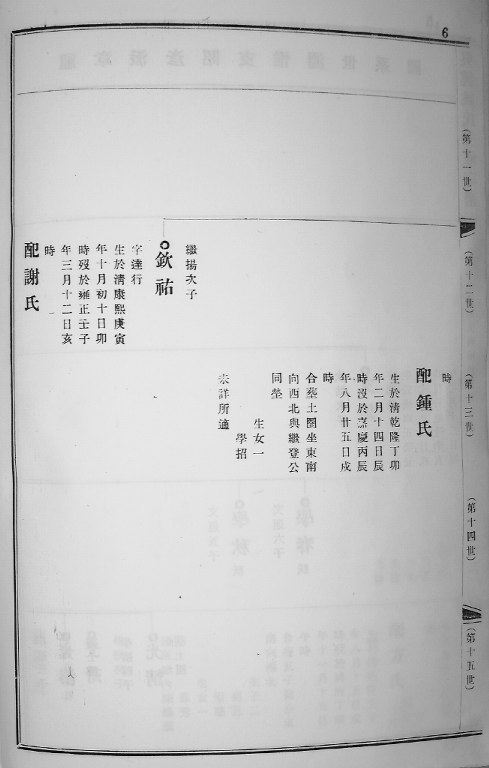 6
(第十一世)
(第十二世)
(第十三世)
(第十四世)
(第十五世)
時
配鍾氏
生於清乾隆丁卯
年二月十四日辰
時沒於嘉慶丙辰
年八月廿五日戌
時
合葬土圈坐東南
向西北與繼登公
同塋
生女一
學招
未詳所適
繼揚次子
欽祐
字達行
生於清康熙庚寅
年十月初十日卯
時歿於雍正壬子
年三月十二日亥
時
配謝氏